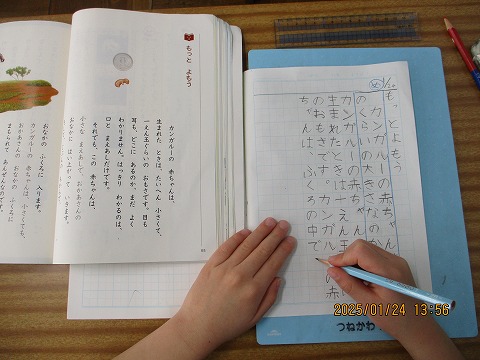 もっと よもう
カンガルーの 赤ちゃんは、
生まれた ときは、たいへん 小さくて、
一えん玉ぐらいの おもさです。目も
耳も、どこに あるのか、まだ よく
わかりません。はっきり わかるのは、
口と まえあしだけです。
それでも、この 赤ちゃんは、
小さな まえあしで、おかあさんの
おなかに はい上がって いきます。
おなかの ふくろに 入ります。
カンガルーの 赤ちゃんは、小さくても、
おかあさんの おなかの ふくろに
まもられて あんぜんなのです。
1/24
め
もっとよもう
カンガルーの赤ちゃん
のくらいの大きさなのか
カンガルーの赤ちゃんは、
生まれたときは一えん玉
のおもさです。カンガル
ちゃんは、ふくろの中で
の赤
2025/01/24 13:56
つねかわ